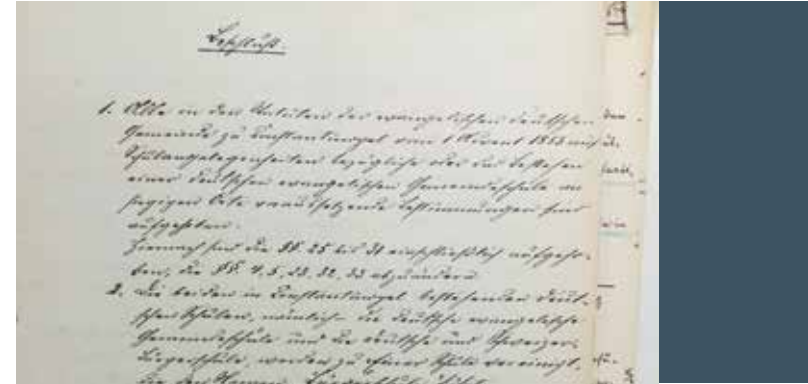 Beschluß.
1. Alle in den Statuten der evangelischen deutschen
Gemeinde zu Constantinopel vom 1 August 1853 auf
Schulangelegenheiten bezügliche oder das Bestehen
einer deutschen evangelischen Gemeindeschule am
hiesigen Orte voraussetzende Bestimmungen sind
aufgehoben.
Hiernach sind die §§. 25 bis 31 einschließlich aufgeho-
ben, die §§. 4, 5, 23, 32, 33 abzuändern.
2. Die beiden in Constantinopel bestehenden deut-
schen Schulen, nämlich die deutsche evangelische
Gemeindeschule und die deutsche und schweizer
Bürgerschule, werden zu einer Schule vereinigt,
die den Namen Bürgerschule führt